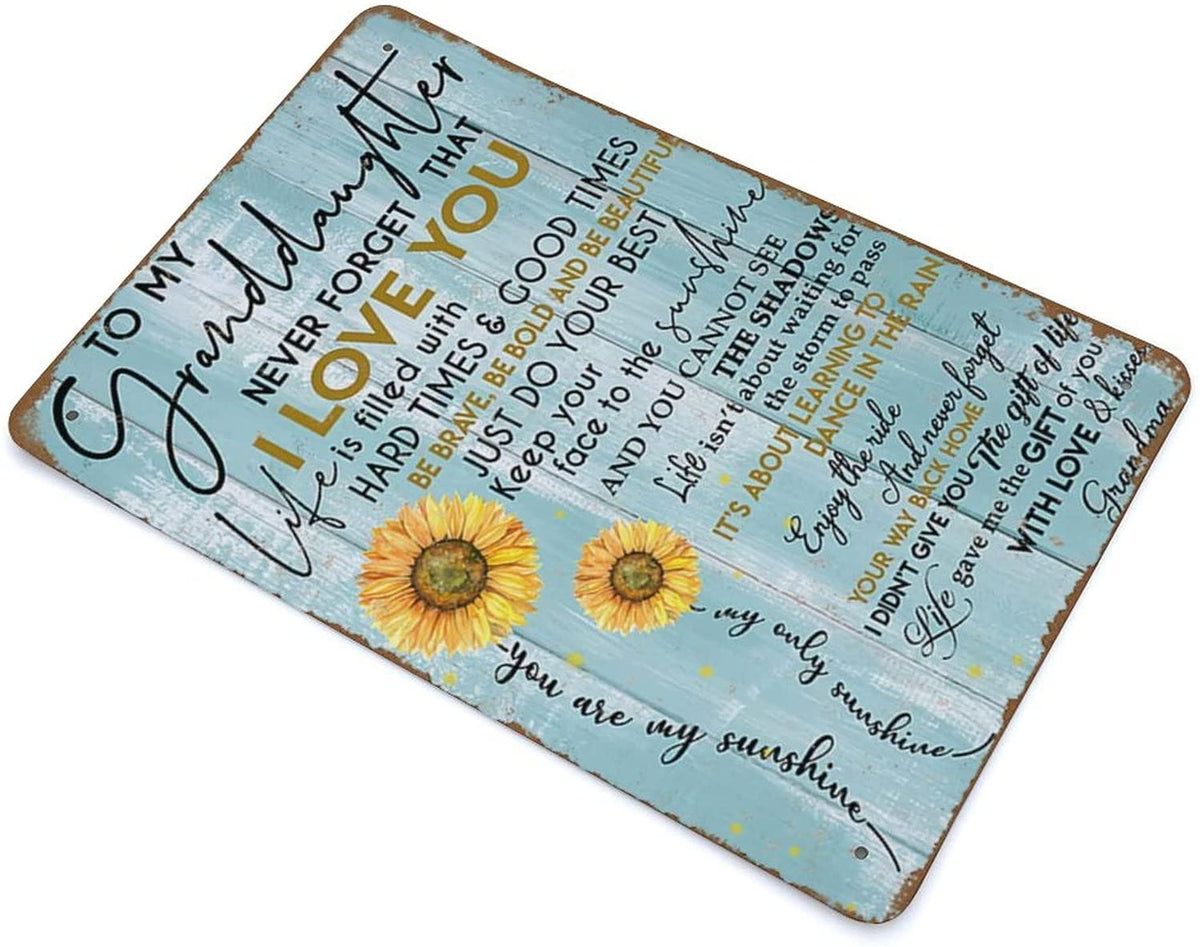 TO MY
Granddaughter
NEVER FORGET THAT
I LOVE YOU
Life is filled with
HARD TIMES & GOOD TIMES
BE BRAVE, BE BOLD AND BE BEAUTIFUL
JUST DO YOUR BEST
Keep your
face to the sunshine
AND YOU CANNOT SEE
THE SHADOWS
Life isn't about waiting for
the storm to pass
IT'S ABOUT LEARNING TO
DANCE IN THE RAIN
Enjoy the ride
And never forget
YOUR WAY BACK HOME
I DIDN'T GIVE YOU The gift of life
Life gave me the GIFT of YOU
WITH LOVE & kisses
Grandma
you are my sunshine
my only sunshine